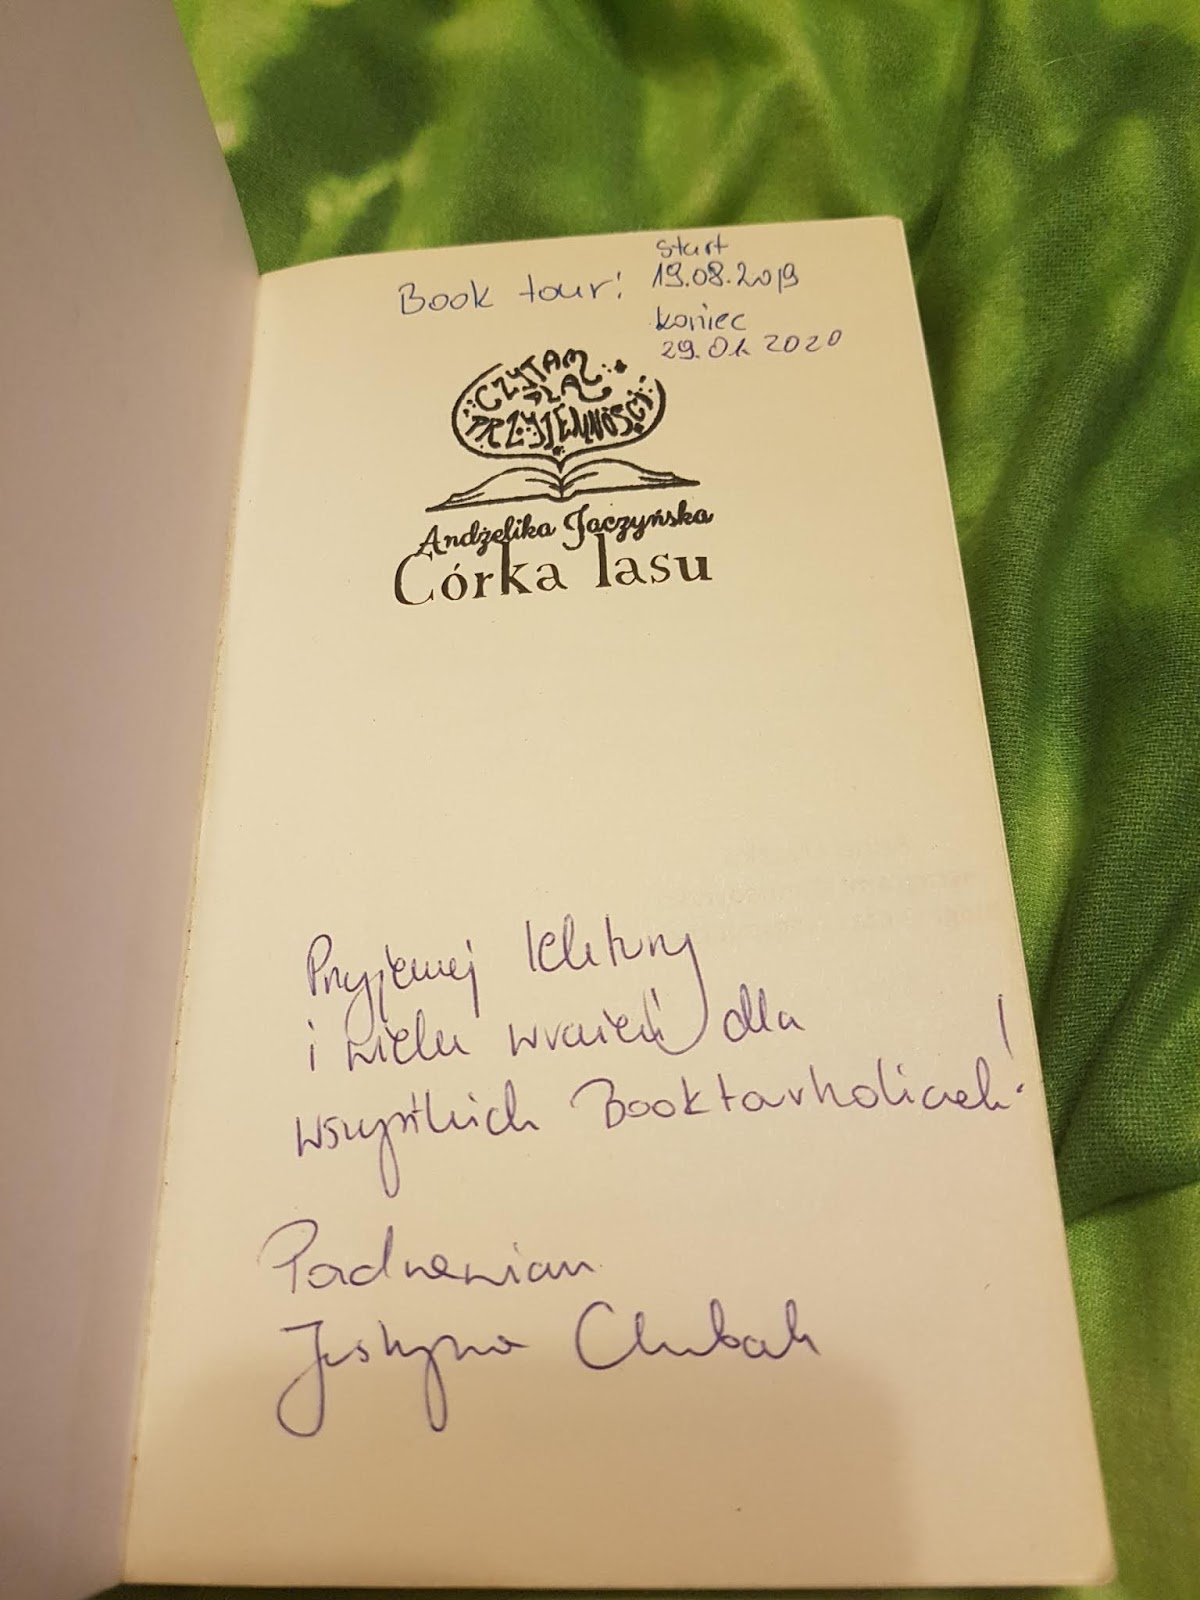 Book tour:
start
19.08.2019
koniec
29.01.2020
CZYTAM
DLA
PRZYJEMNOŚCI
Andżelika Jaczyńska
Córka lasu
Przyjemnej lektury
i wielu wrażeń dla
wszystkich Booktourholiczek!
Pozdrawiam
Justyna Chubak